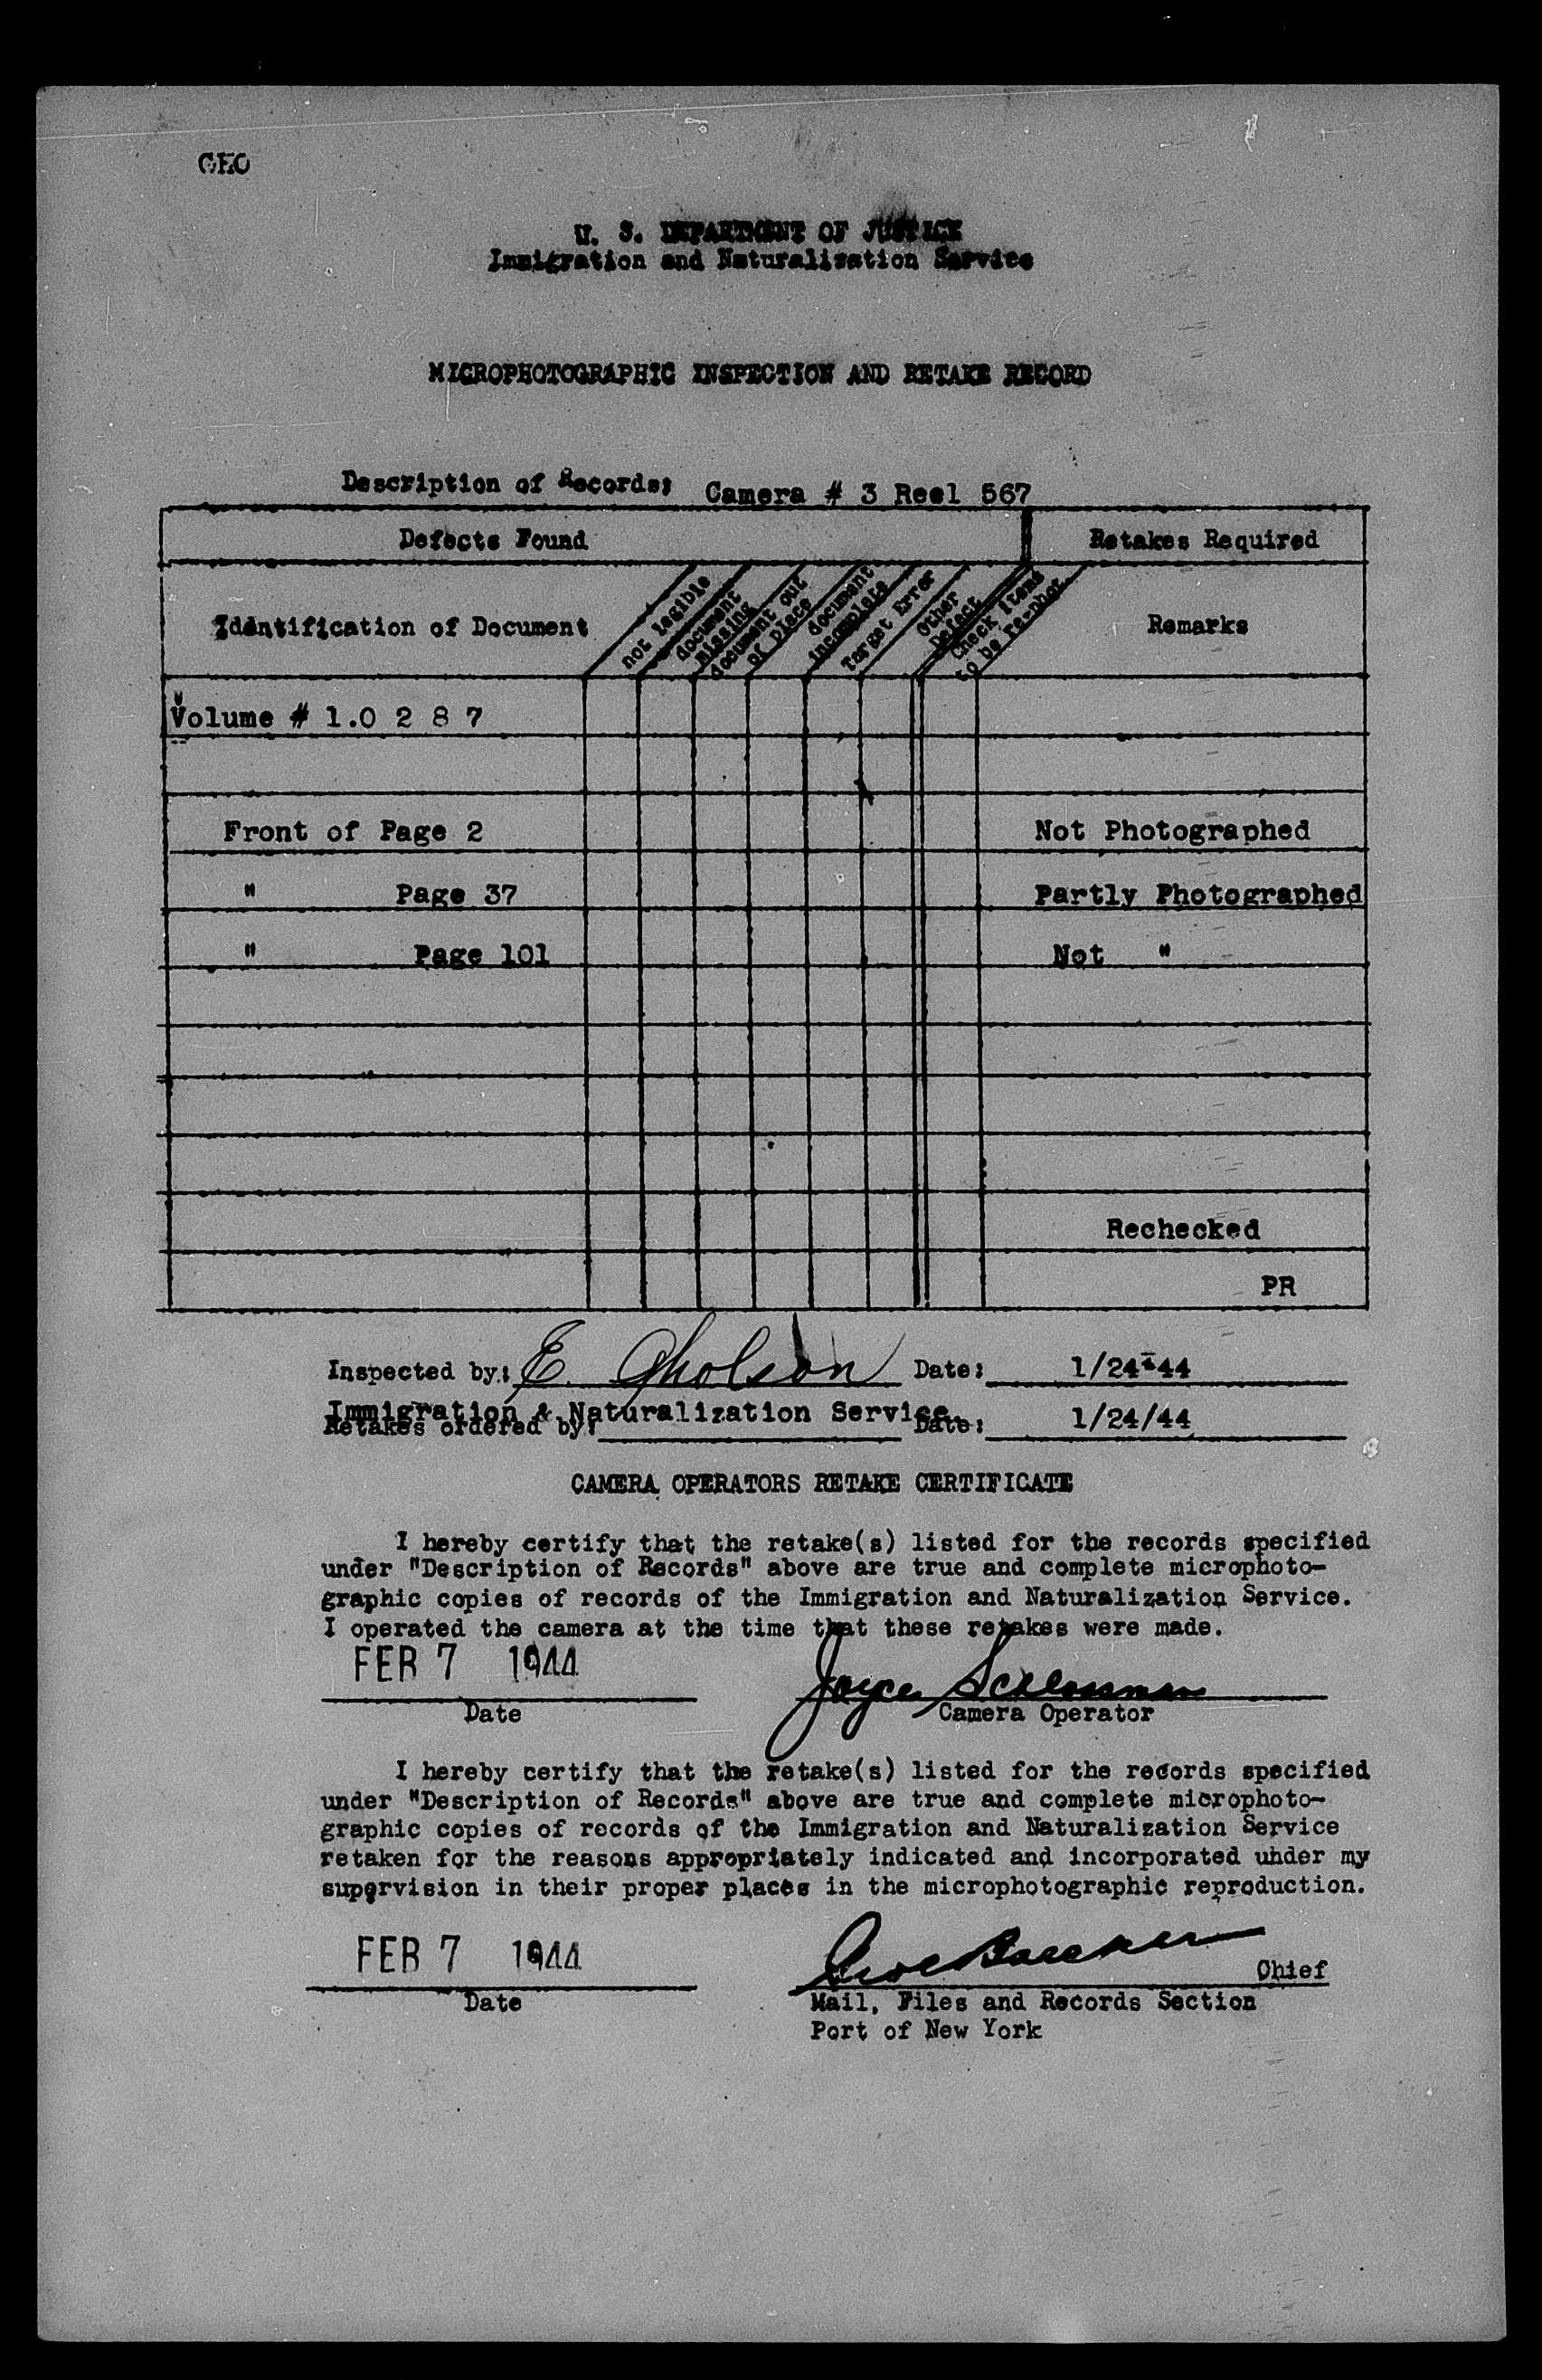 GEO
U. S. DEPARTMENT OF JUSTICE
Immigration and Naturalization Service
MICROPHOTOGRAPHIC INSPECTION AND RETAKE RECORD
Description of Records: Camera # 3 Reel 567
Defects Found
Retakes Required
Identification of Document
not legible
document missing
document out of place
document incomplete
Target Error
Other Defect
Check items to be re-phot
Remarks
Volume # 1.0 2 8 7
Front of Page 2 Not Photographed
" Page 37 Partly Photographed
" Page 101 Not "
Rechecked
PR
Inspected by: E. Gholson Date: 1/24-44
Immigration & Naturalization Service
Retakes ordered by: Date: 1/24/44
CAMERA OPERATORS RETAKE CERTIFICATE
I hereby certify that the retake(s) listed for the records specified
under "Description of Records" above are true and complete microphoto-
graphic copies of records of the Immigration and Naturalization Service.
I operated the camera at the time that these retakes were made.
FEB 7 1944 Joyce Schlossman
Date Camera Operator
I hereby certify that the retake(s) listed for the records specified
under "Description of Records" above are true and complete microphoto-
graphic copies of records of the Immigration and Naturalization Service
retaken for the reasons appropriately indicated and incorporated under my
supervision in their proper places in the microphotographic reproduction.
FEB 7 1944 Chief
Date Mail, Files and Records Section
Port of New York